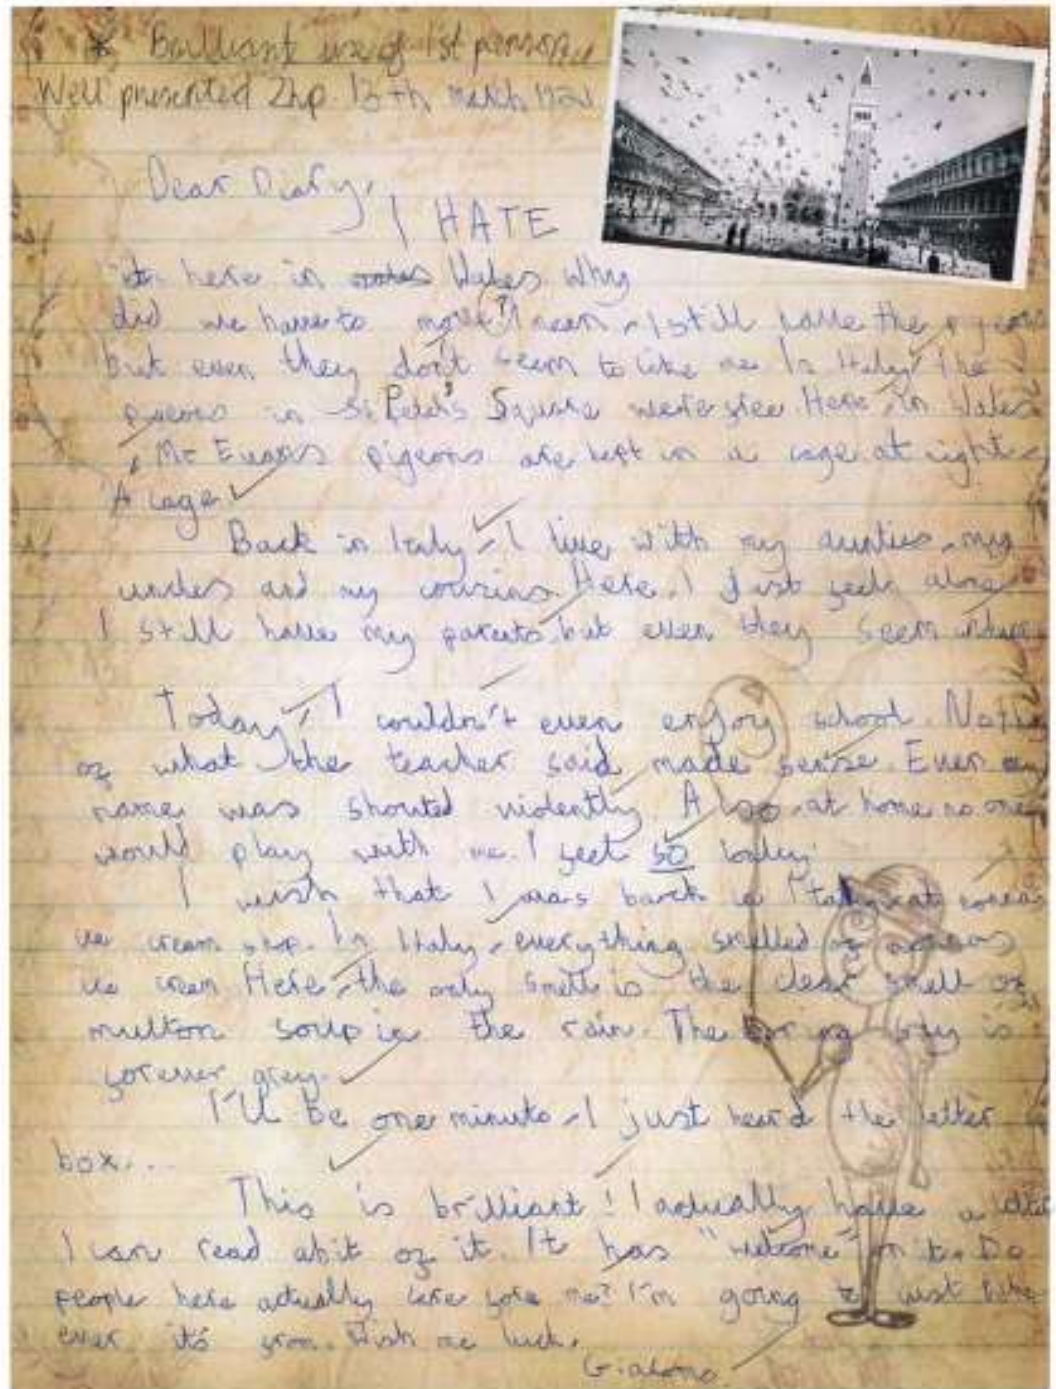 * Brilliant use of 1st person
Well presented 2hp 13th march
Dear Diary,
I HATE
it here in Wales Why
did we have to move? I mean, I still have the pigeons
but even they don't seem to like me In Italy, the
pigeons in St Peter's Square were free. Here, in Wales
, Mr Evans pigeons are kept in a cage at night,
A cage
Back in Italy, I live with my aunties, my
uncles and my cousins. Here, I just feel alone
I still have my parents, but even they seem
Today, I couldn't even enjoy school. None
of what the teacher said made sense. Even my
name was shouted violently. Also, at home no one
would play with me. I feel so lonley.
I wish that I was back in Italy, at
ice cream shop. In Italy, everything smelled of
ice cream Here, the only smell is the clear smell of
mutton soup in the rain. The boring sky is
forever grey.
I'll be one minute, I just heard the letter
box...
This is brilliant! I actually have a letter
I can read abit of it. It has "welcome" on it. Do
people here actually care fore me? I'm going to visit
ever it's from. Wish me luck.